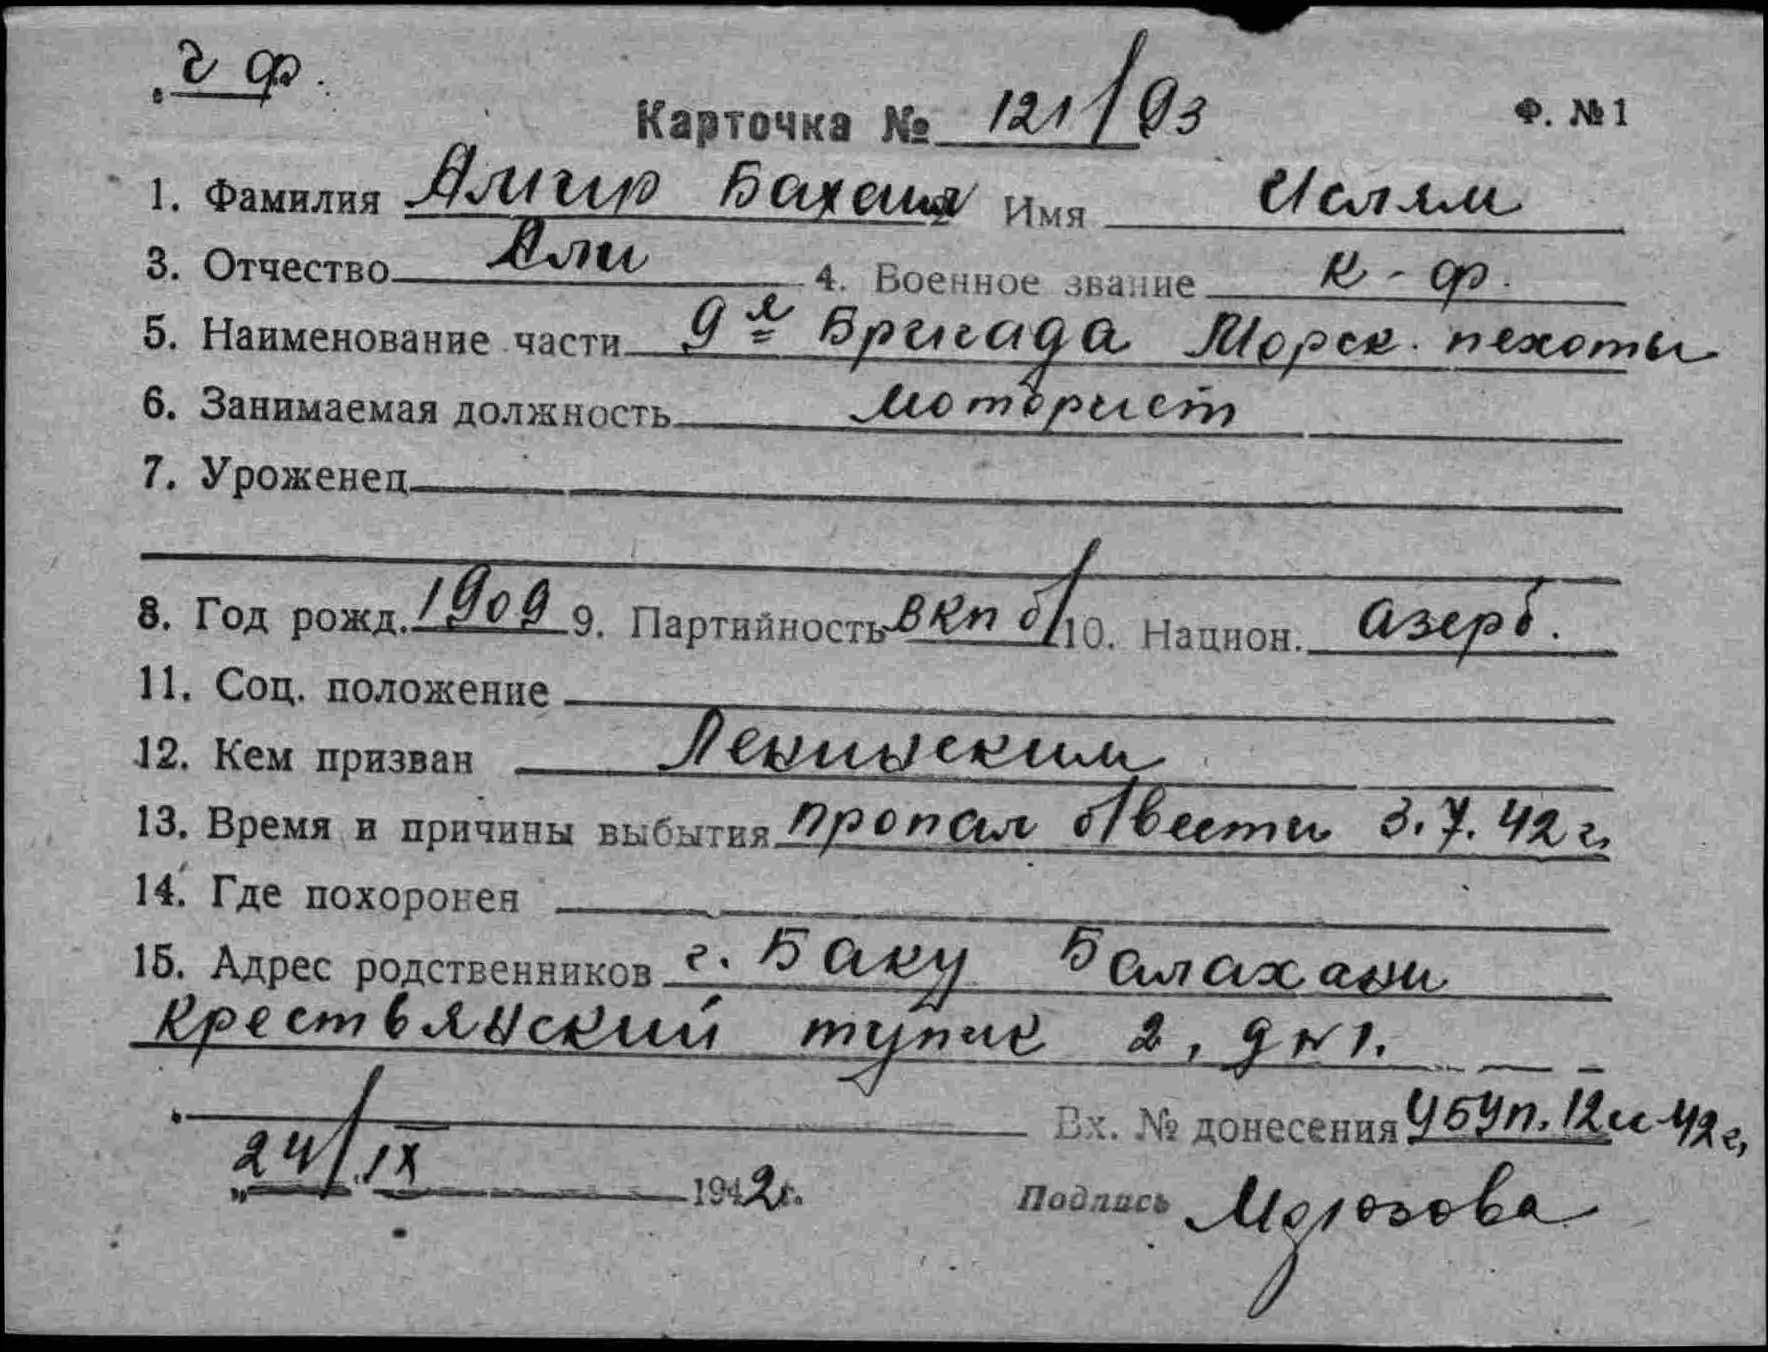 ч ф.
Карточка № 121/93 Ф. №1
1. Фамилия Амир Бахеша Имя Ислям
3. Отчество Али 4. Военное звание к-ф.
5. Наименование части 9я Бригада Морск. пехоты
6. Занимаемая должность моторист
7. Уроженец
8. Год рожд. 1909 9. Партийность ВКП б/ 10. Национ. азерб.
11. Соц. положение
12. Кем призван Ленинским
13. Время и причины выбытия пропал б/вести 3.7.42 г.
14. Где похоронен
15. Адрес родственников г. Баку Балахани
Крестьянский тупик 2, д N 1.
Вх. № донесения 459п. 12и-42г.
24/IX 1942г. Подпись Морозова